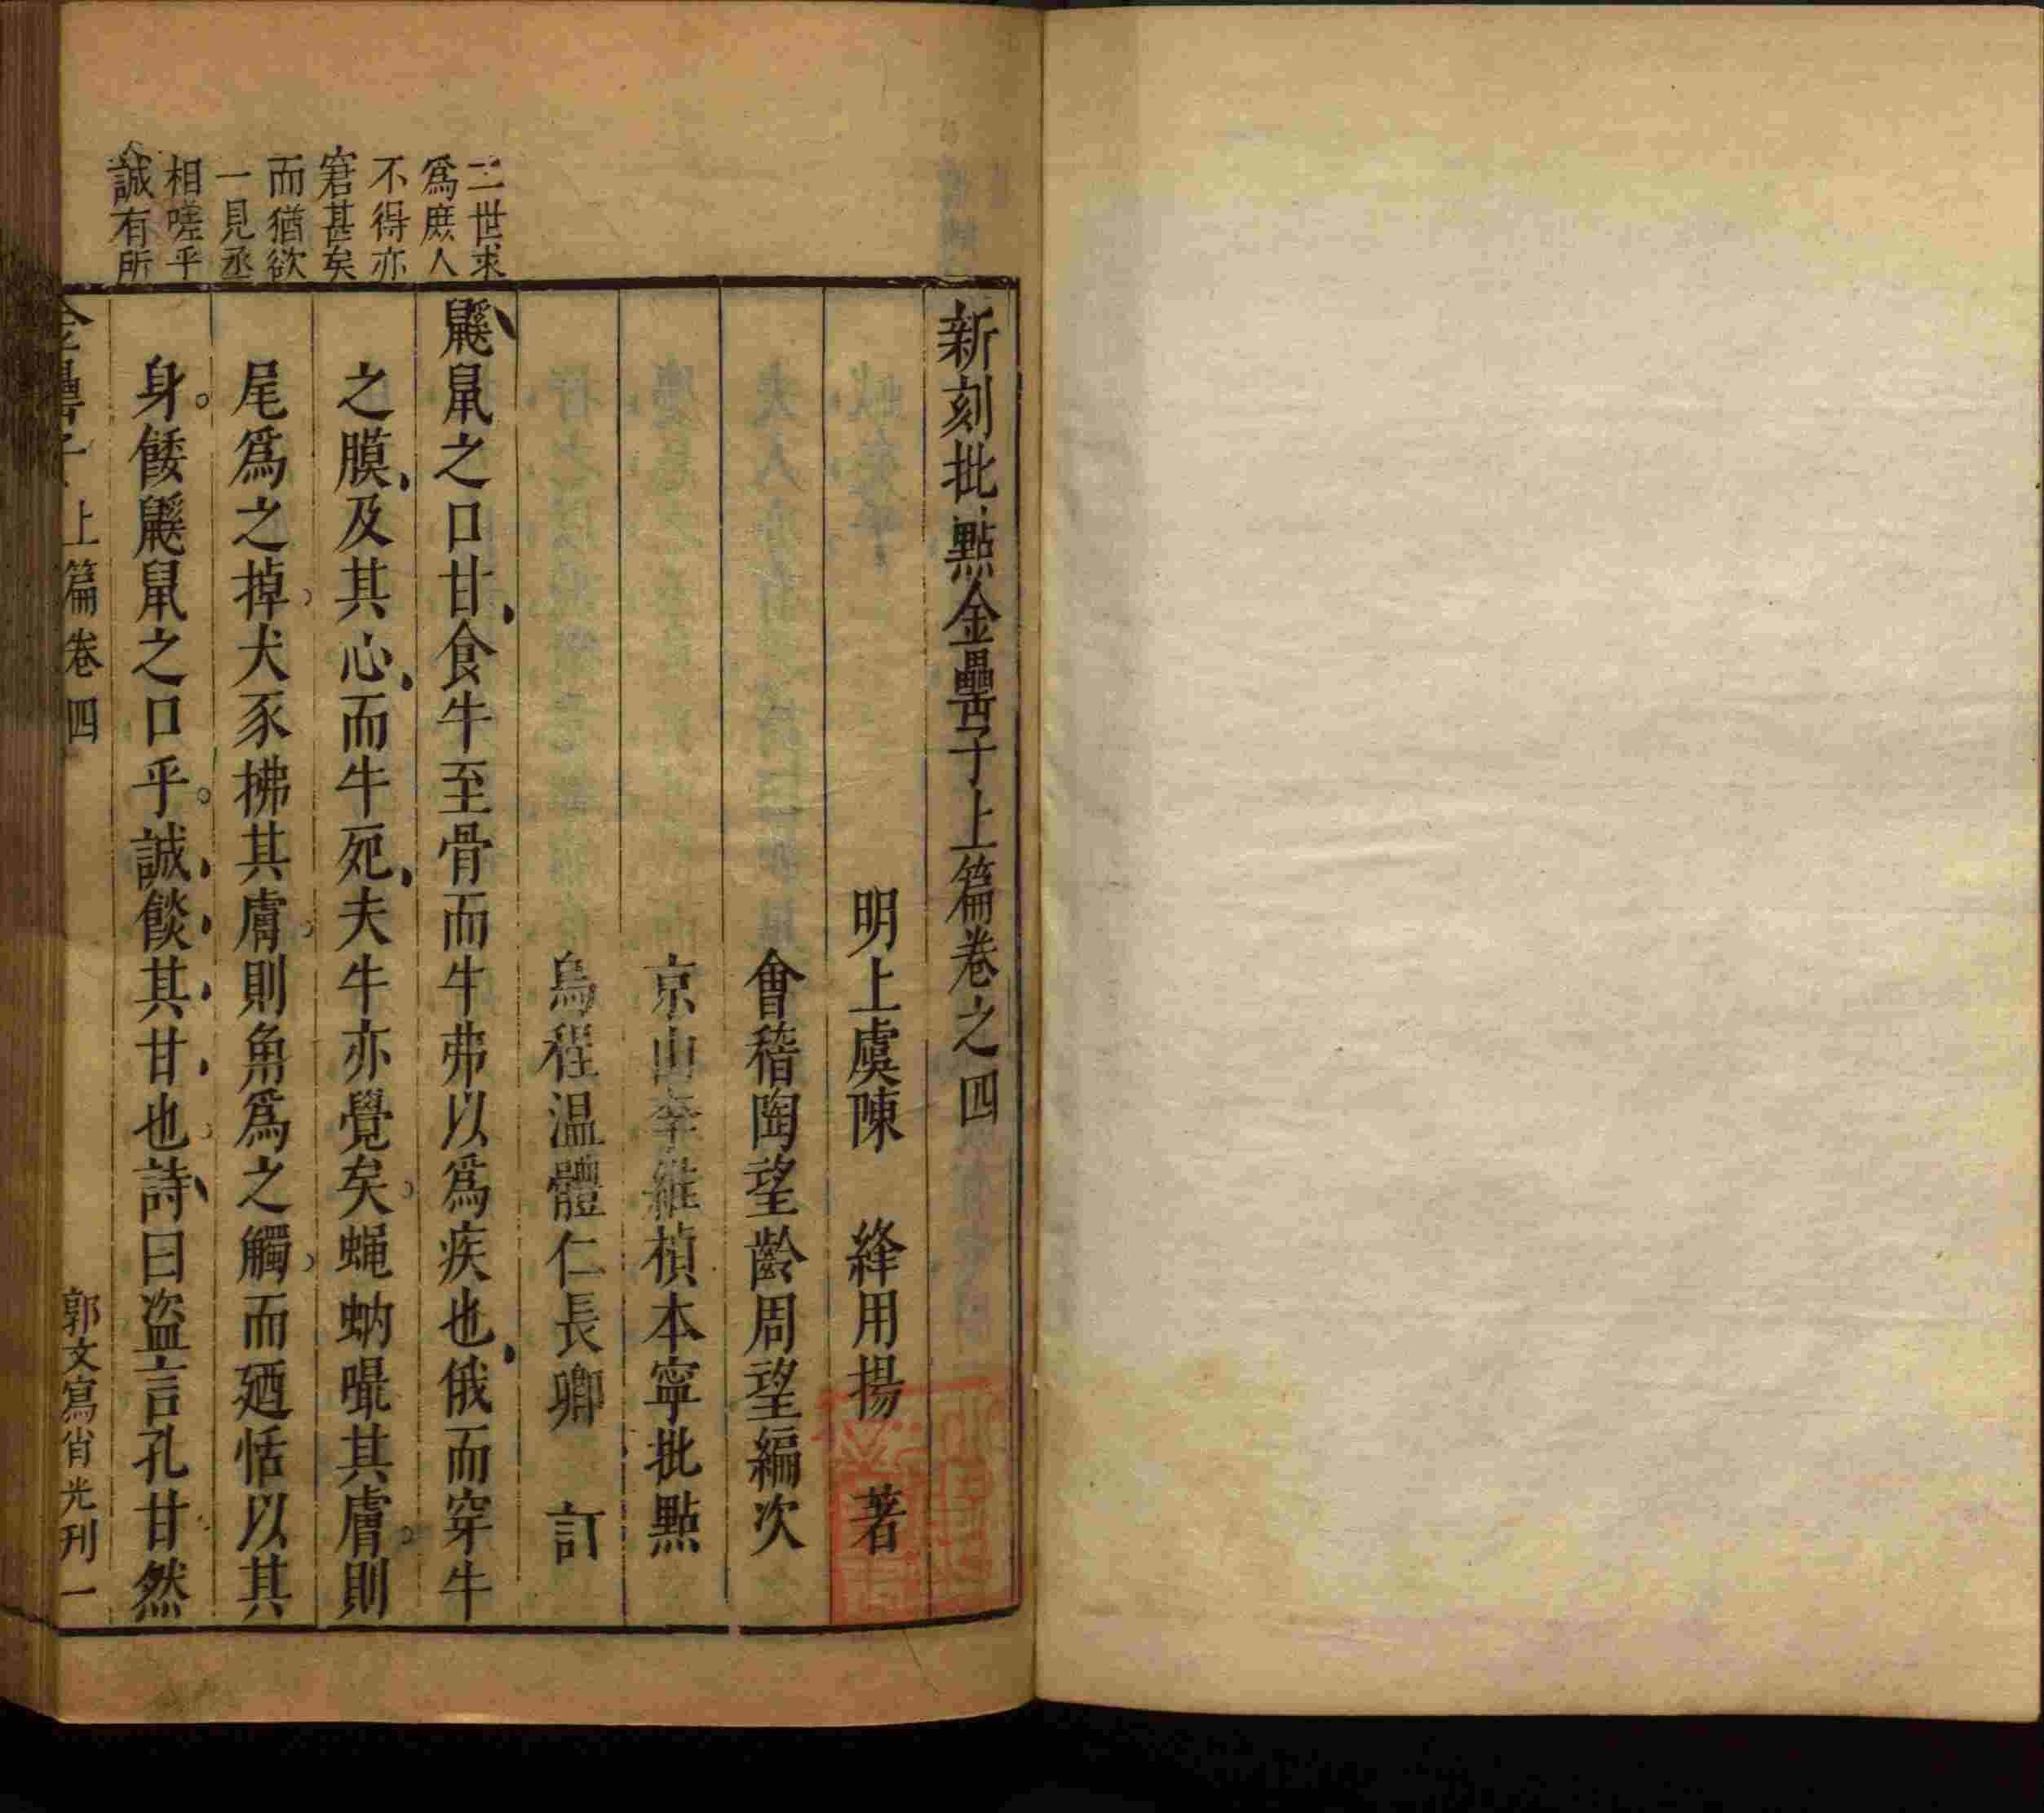 新刻批點金罍子上篇卷之四
明上虞陳　絳用揚　著
會稽陶望齡周望編次
京山李維楨本寧批點
烏程温體仁長卿　訂
二世求
爲庶人
不得亦
窘甚矣
而猶欲
一見丞
相嗟乎
誠有所
鼷鼠之口甘食牛至骨而牛弗以爲疾也俄而穿牛
之膜及其心而牛死夫牛亦覺矣蝇蚋嘬其膚則
尾爲之掉犬豕拂其膚則角爲之觸而廼恬以其
身餧鼷鼠之口乎誠餤其甘也詩曰盜言孔甘然
金罍子 上篇卷四 郭文寫肖光刊 一